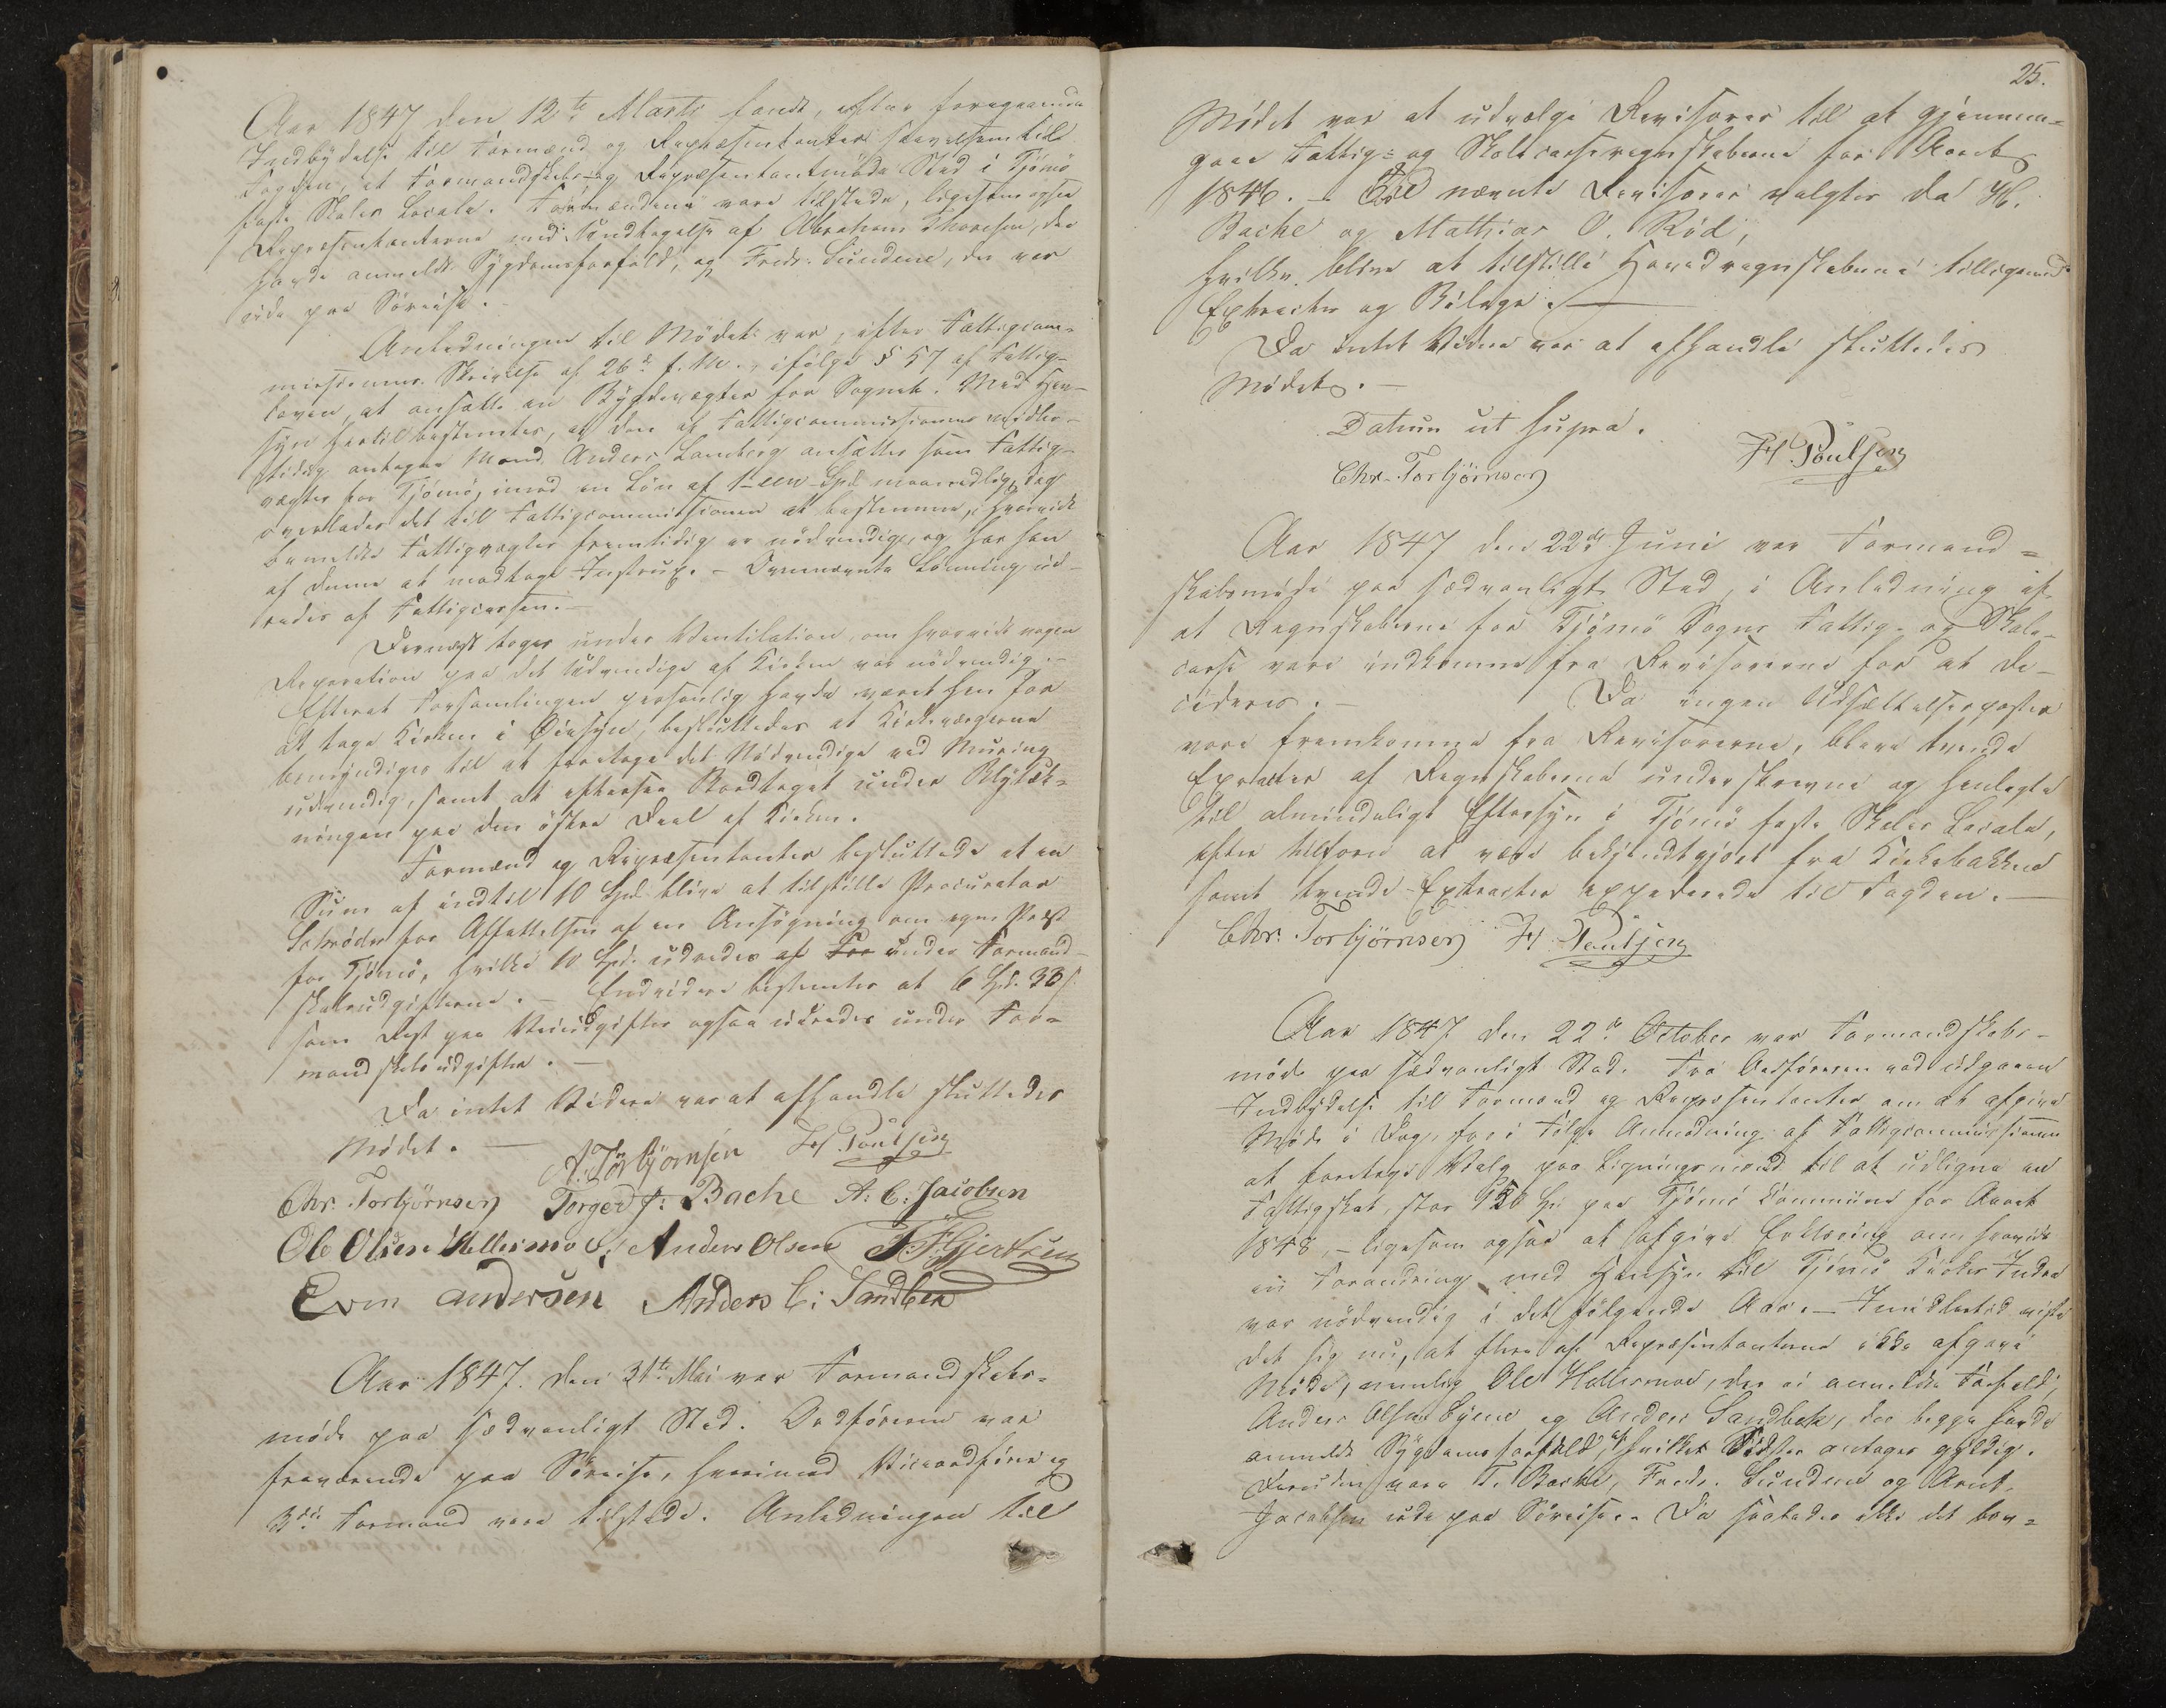 Aar 1847 den 12te Marts fandt, efter foregaaende
Indbydelse til Formænd og Repræsentanter samt til
Fogden, et Formandskabs- og Repræsentantmøde Sted i Tjømø
faste Skoles Locale. Formændene vare tilstede, ligesom ogsaa
Repræsentanterne med Undtagelse af Abraham Thoresen, der
havde anmeldt Sygdomsforfald, og Fredr. Sundene, der var
ude paa Søreise.
Anledningen til Mødet var, efter Fattigcom-
missionens Skrivelse af 26de f. M. ifølge § 57 af Fattig-
loven, at ansætte en Bygdevægter for Sognet. Med Hen-
syn hertil bestemtes, at den af Fattigcommissionen midler-
tidig antagne Mand Anders Lamberg ansættes som Fattig-
vægter for Tjømø, imod en Løn af 1-een-Spd. maanedlig, dog
overlades det til Fattigcommissionen at bestemme, hvorvidt
bemeldte Fattigvægter fremtidig er nødvendig, og har han
af denne at modtage Instrux. - Ovennævnte Lønning ud-
redes af Fattigcassen. -
Dernæst toges under Ventilation om hvorvidt nogen
Reparation paa det Udvendige af Kirken var nødvendig. -
Efterat Forsamlingen personlig havde været hen for
at tage Kirken i Øiesyn, besluttedes at Kirkeværgerne
bemyndiges til at foretage det Nødvendige ved Muring
udvendig, samt at eftersee Bordtaget under Blytæk-
ningen paa den østre Deel af Kirken.
Formænd og Repræsentanter besluttede at en
Sum af indtil 10 Spd. blive at tilstille Procurator
Schrøder for Affattelsen af en Ansøgning om egen Præst
for Tjømø, hvilke 10 Spd. udredes af For under Formand-
skabsudgifterne. - Endvidere bestemtes at 6 Spd. 33 s
som Rest paa Veiudgifter ogsaa udredes under For-
mandskabsudgifter. -
Da intet Videre var at afhandle sluttedes
Mødet. - A. Torbjørnsen H. Poulsen
Chr. Torbjørnsen Torger J: Bache A: C: Jacobsen
Ole Olsen Hellesmo Anders Olsen F. Gjertsen
Even Andersen Anders C: Sandbek
Aar 1847. den 31te Mai var Formandskabs-
møde paa sædvanligt Sted. Ordføreren var
fraværende paa Søreise, hvorimod Viceordfører og
3die Formand vare tilstede. Anledningen til
25.
Mødet var at udvælge Revisorer til at gjennem-
gaae Fattig- og Skolecasseregnskaberne for Aaret
1846. - Til nævnte Revisorer valgtes da H.
Bache og Mathias O. Rød,
hvilke blive at tilstille Hovedregnskaberne tilligemed
Extracter og Bilage. -
Da intet Videre var at afhandle sluttedes
Mødet. -
Datum ut supra.
Chr. Torbjørnsen H Poulsen
Aar 1847 den 22de Juni var Formand-
skabsmøde paa sædvanligt Sted, i Anledning af
at Regnskaberne for Tjømø Sogns Fattig- og Skole-
casse vare indkomne fra Revisorerne for at de-
cideres. - Da ingen Udsættelsesposter
vare fremkomne fra Revisorerne, bleve tvende
Extracter af Regnskaberne underskrevne og henlagte
til almindeligt Eftersyn i Tjømø faste Skoles Locale,
efter tilforn at være bekjendtgjort fra Kirkebakken
samt tvende Extracter expederede til Fogden. -
Chr. Torbjørnsen H Poulsen
Aar 1847 den 22de October var Formandskabs-
møde paa sædvanligt Sted. Fra Ordføreren var udgaaen
Indbydelse til Formænd og Repræsentanter om at afgive
Møde i Dag, for i Følge Anmodning af Fattigcommissionen
at foretage Valg paa Ligningsmænd til at udligne en
Fattigskat, stor 120 Spd paa Tjømø Commune for Aaret
1848, - ligesom ogsaa at afgive Erklæring om hvorvidt
en Forandring med Hensyn til Tjømø Kirkes Indre
var nødvendig i det følgende Aar. - Imidlertid viste
det sig nu, at flere af Repræsentanterne ikke afgave
Møde, nemlig Ole Hellesmoe, der ei anmeldte Forfald,
Anders Olsen Eyene og Anders Sandbek, der begge havde
anmeldt Sygdomsforfald, af hvilket Sidste antages gyldig.
Desuden vare T. Bache, Fredr. Sundene og Arnt
Jacobsen ude paa Søreise. - Da saaledes ikke det lov-